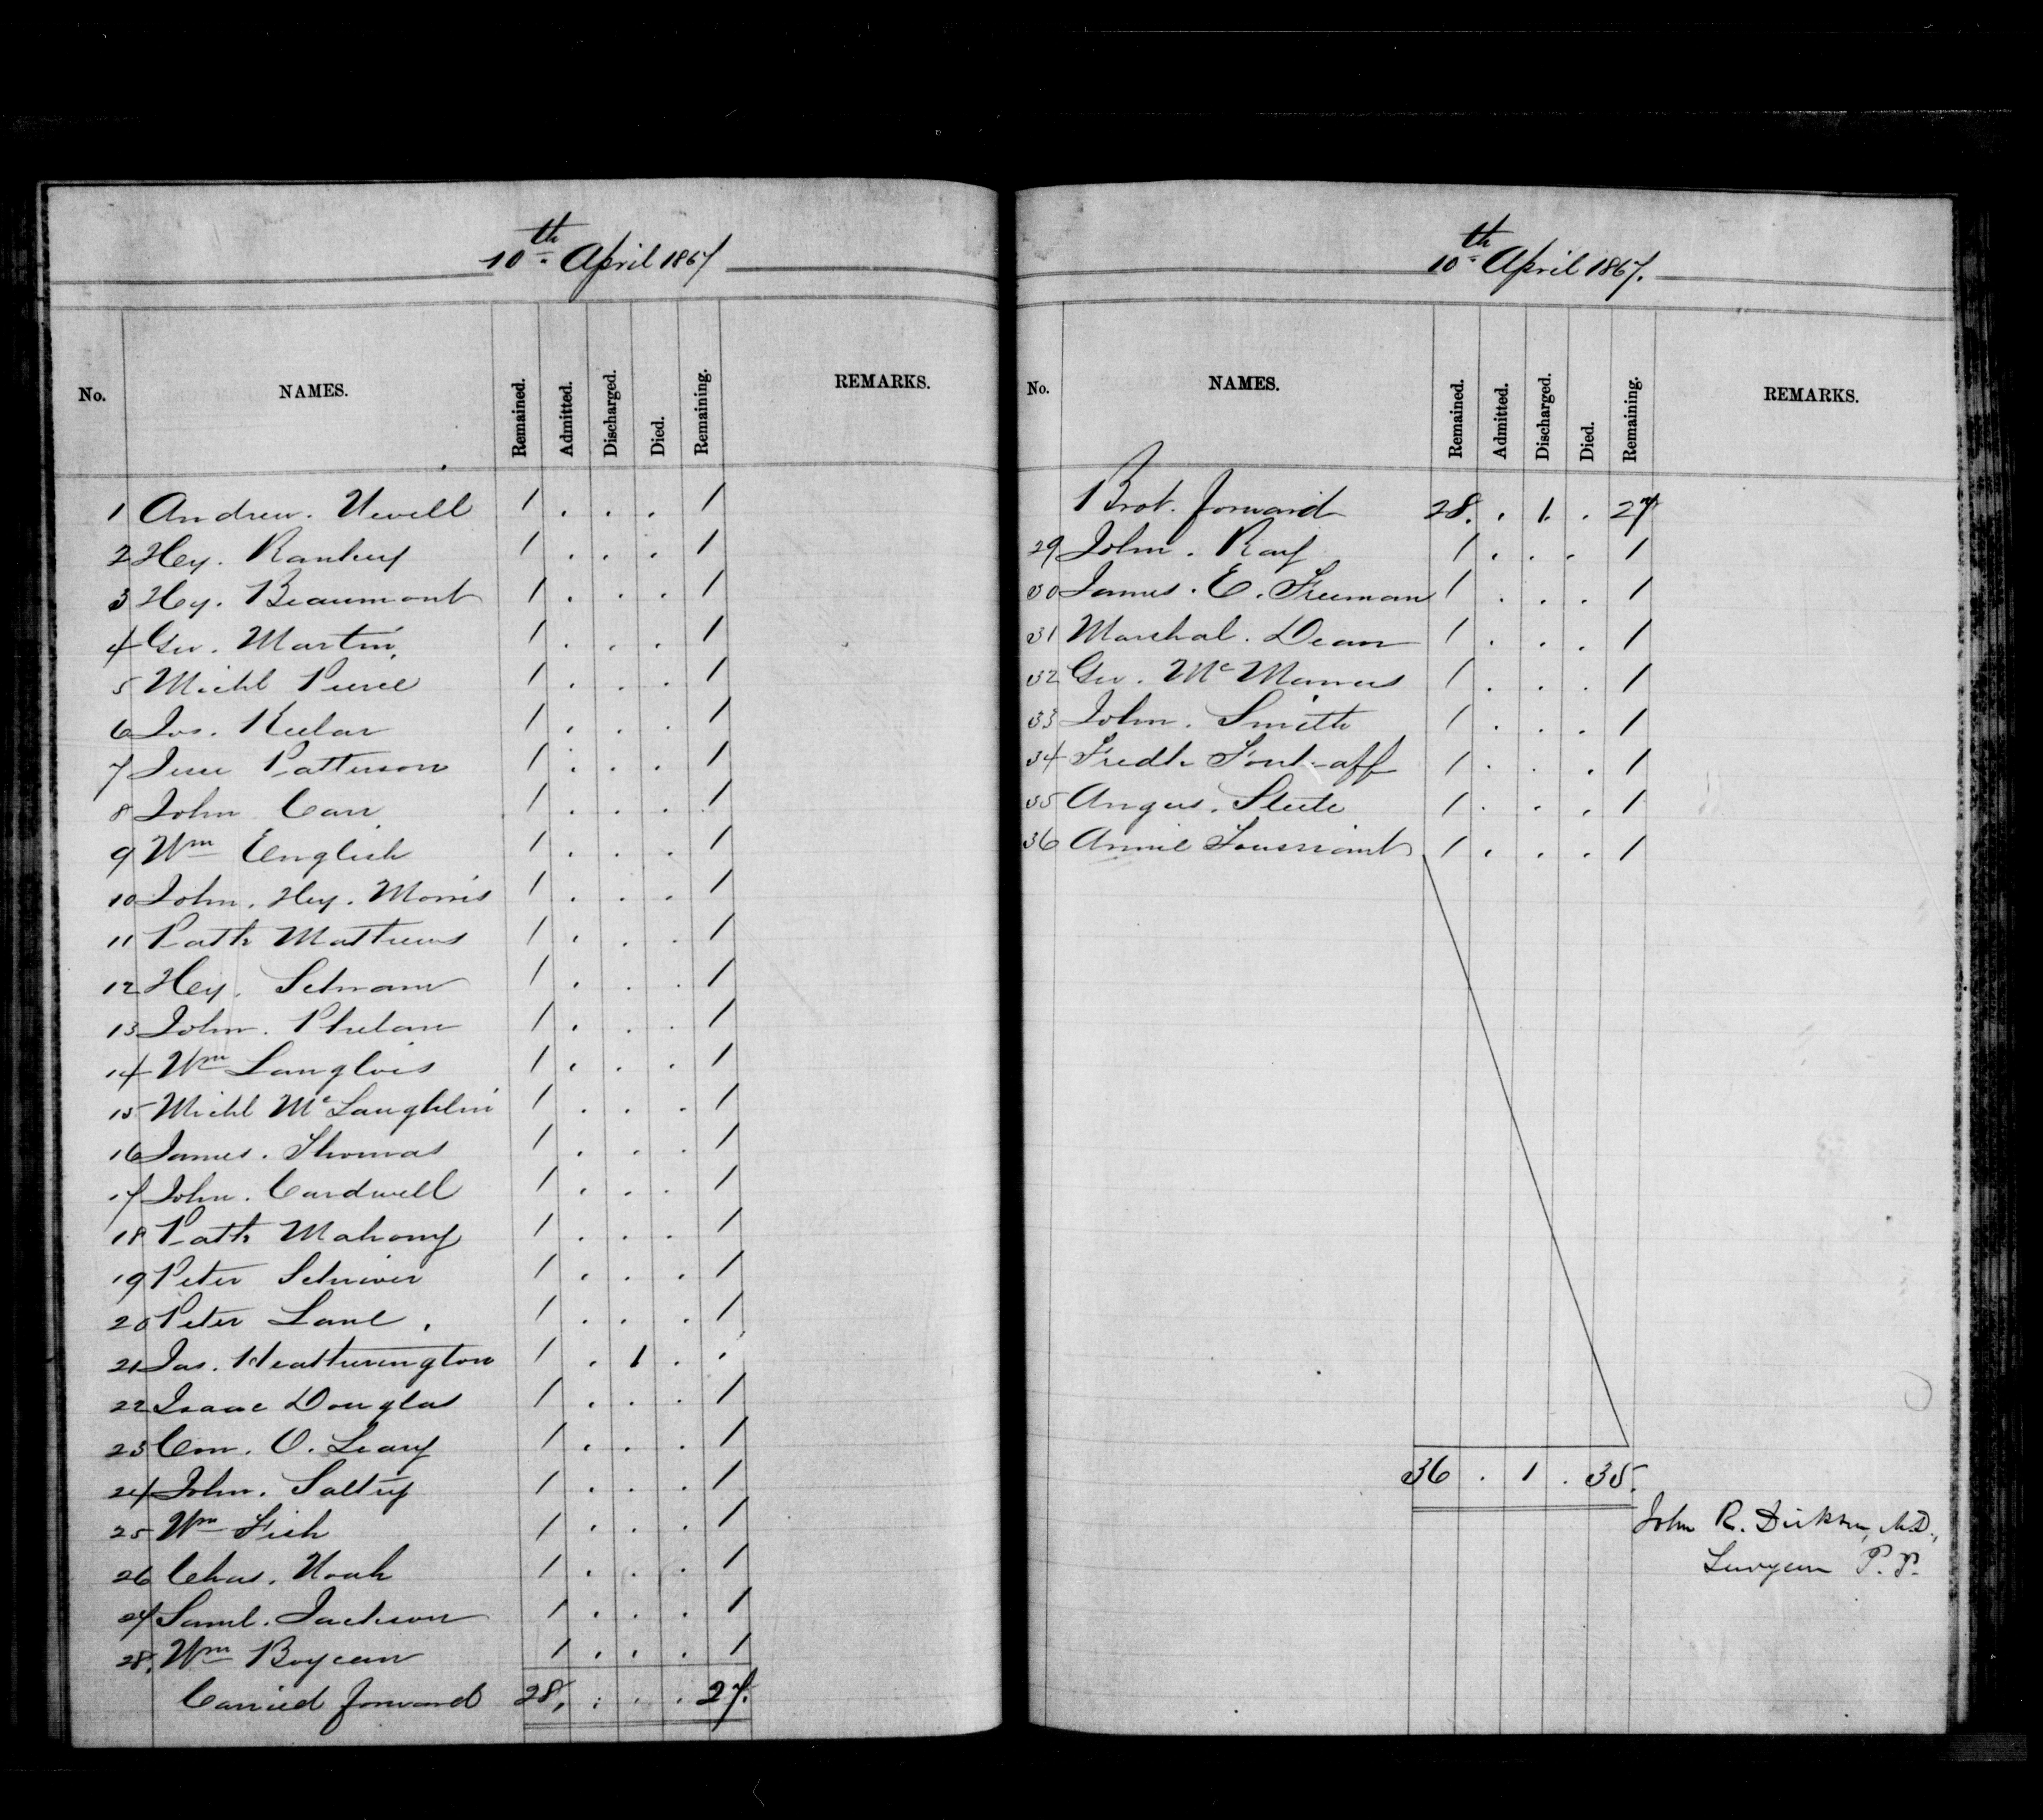 10th April 1867
No. NAMES. Remained. Admitted. Discharged. Died. Remaining. REMARKS.
1 Andrew. Newell 1 . . . 1
2 Hey. 1 . . . 1
3 Hy. Beaumont 1 . . . 1
4 Geo. Martin. 1 . . . 1
5 Michl Pierce 1 . . . 1
6 Jos. 1 . . . 1
7 Jesse Patterson 1 . . . 1
8 John Carr 1 . . . 1
9 Wm English 1 . . . 1
10 John. Hey. Morris 1 . . . 1
11 Patk Mathews 1 . . . 1
12 Hey. 1 . . . 1
13 John. Phelan 1 . . . 1
14 Wm Langlois 1 . . . 1
15 Michl McLaughlin 1 . . . 1
16 James. Thomas 1 . . . 1
17 John. Cardwell 1 . . . 1
18 Patk Mahony 1 . . . 1
19 Peter Schriver 1 . . . 1
20 Peter Lane . 1 . . . 1
21 Jas. Heatherington 1 . 1 . .
22 Isaac Douglas 1 . . . 1
23 Con. O. Leary 1 . . . 1
24 John. 1 . . . 1
25 Wm Fish 1 . . . 1
26 Chas. Noah 1 . . . 1
27 Saml. Jackson 1 . . . 1
28. Wm 1 . . . 1
Carried forward 28, . . . 27.
10th April 1867.
No. NAMES. Remained. Admitted. Discharged. Died. Remaining. REMARKS.
Brot. forward 28. . 1. . 27
29 John. Ray 1 . . . 1
30 James. E. Freeman 1 . . . 1
31 Marshal. Dean 1 . . . 1
32 Geo. McManus 1 . . . 1
33 John. Smith 1 . . . 1
34 Fredk 1 . . . 1
35 Angus. Steele 1 . . . 1
36 Annie Toussaint 1 . . . 1
36 . 1 . 35.
John R. Dickson, M.D.,
Surgeon P.P.